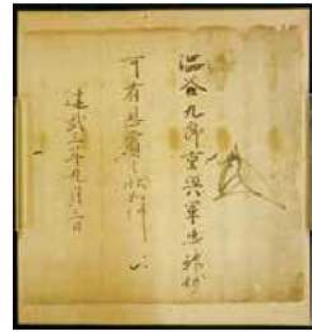 渋谷九郎重興軍忠神妙
可有恩賞之状如件
建武三年九月三日